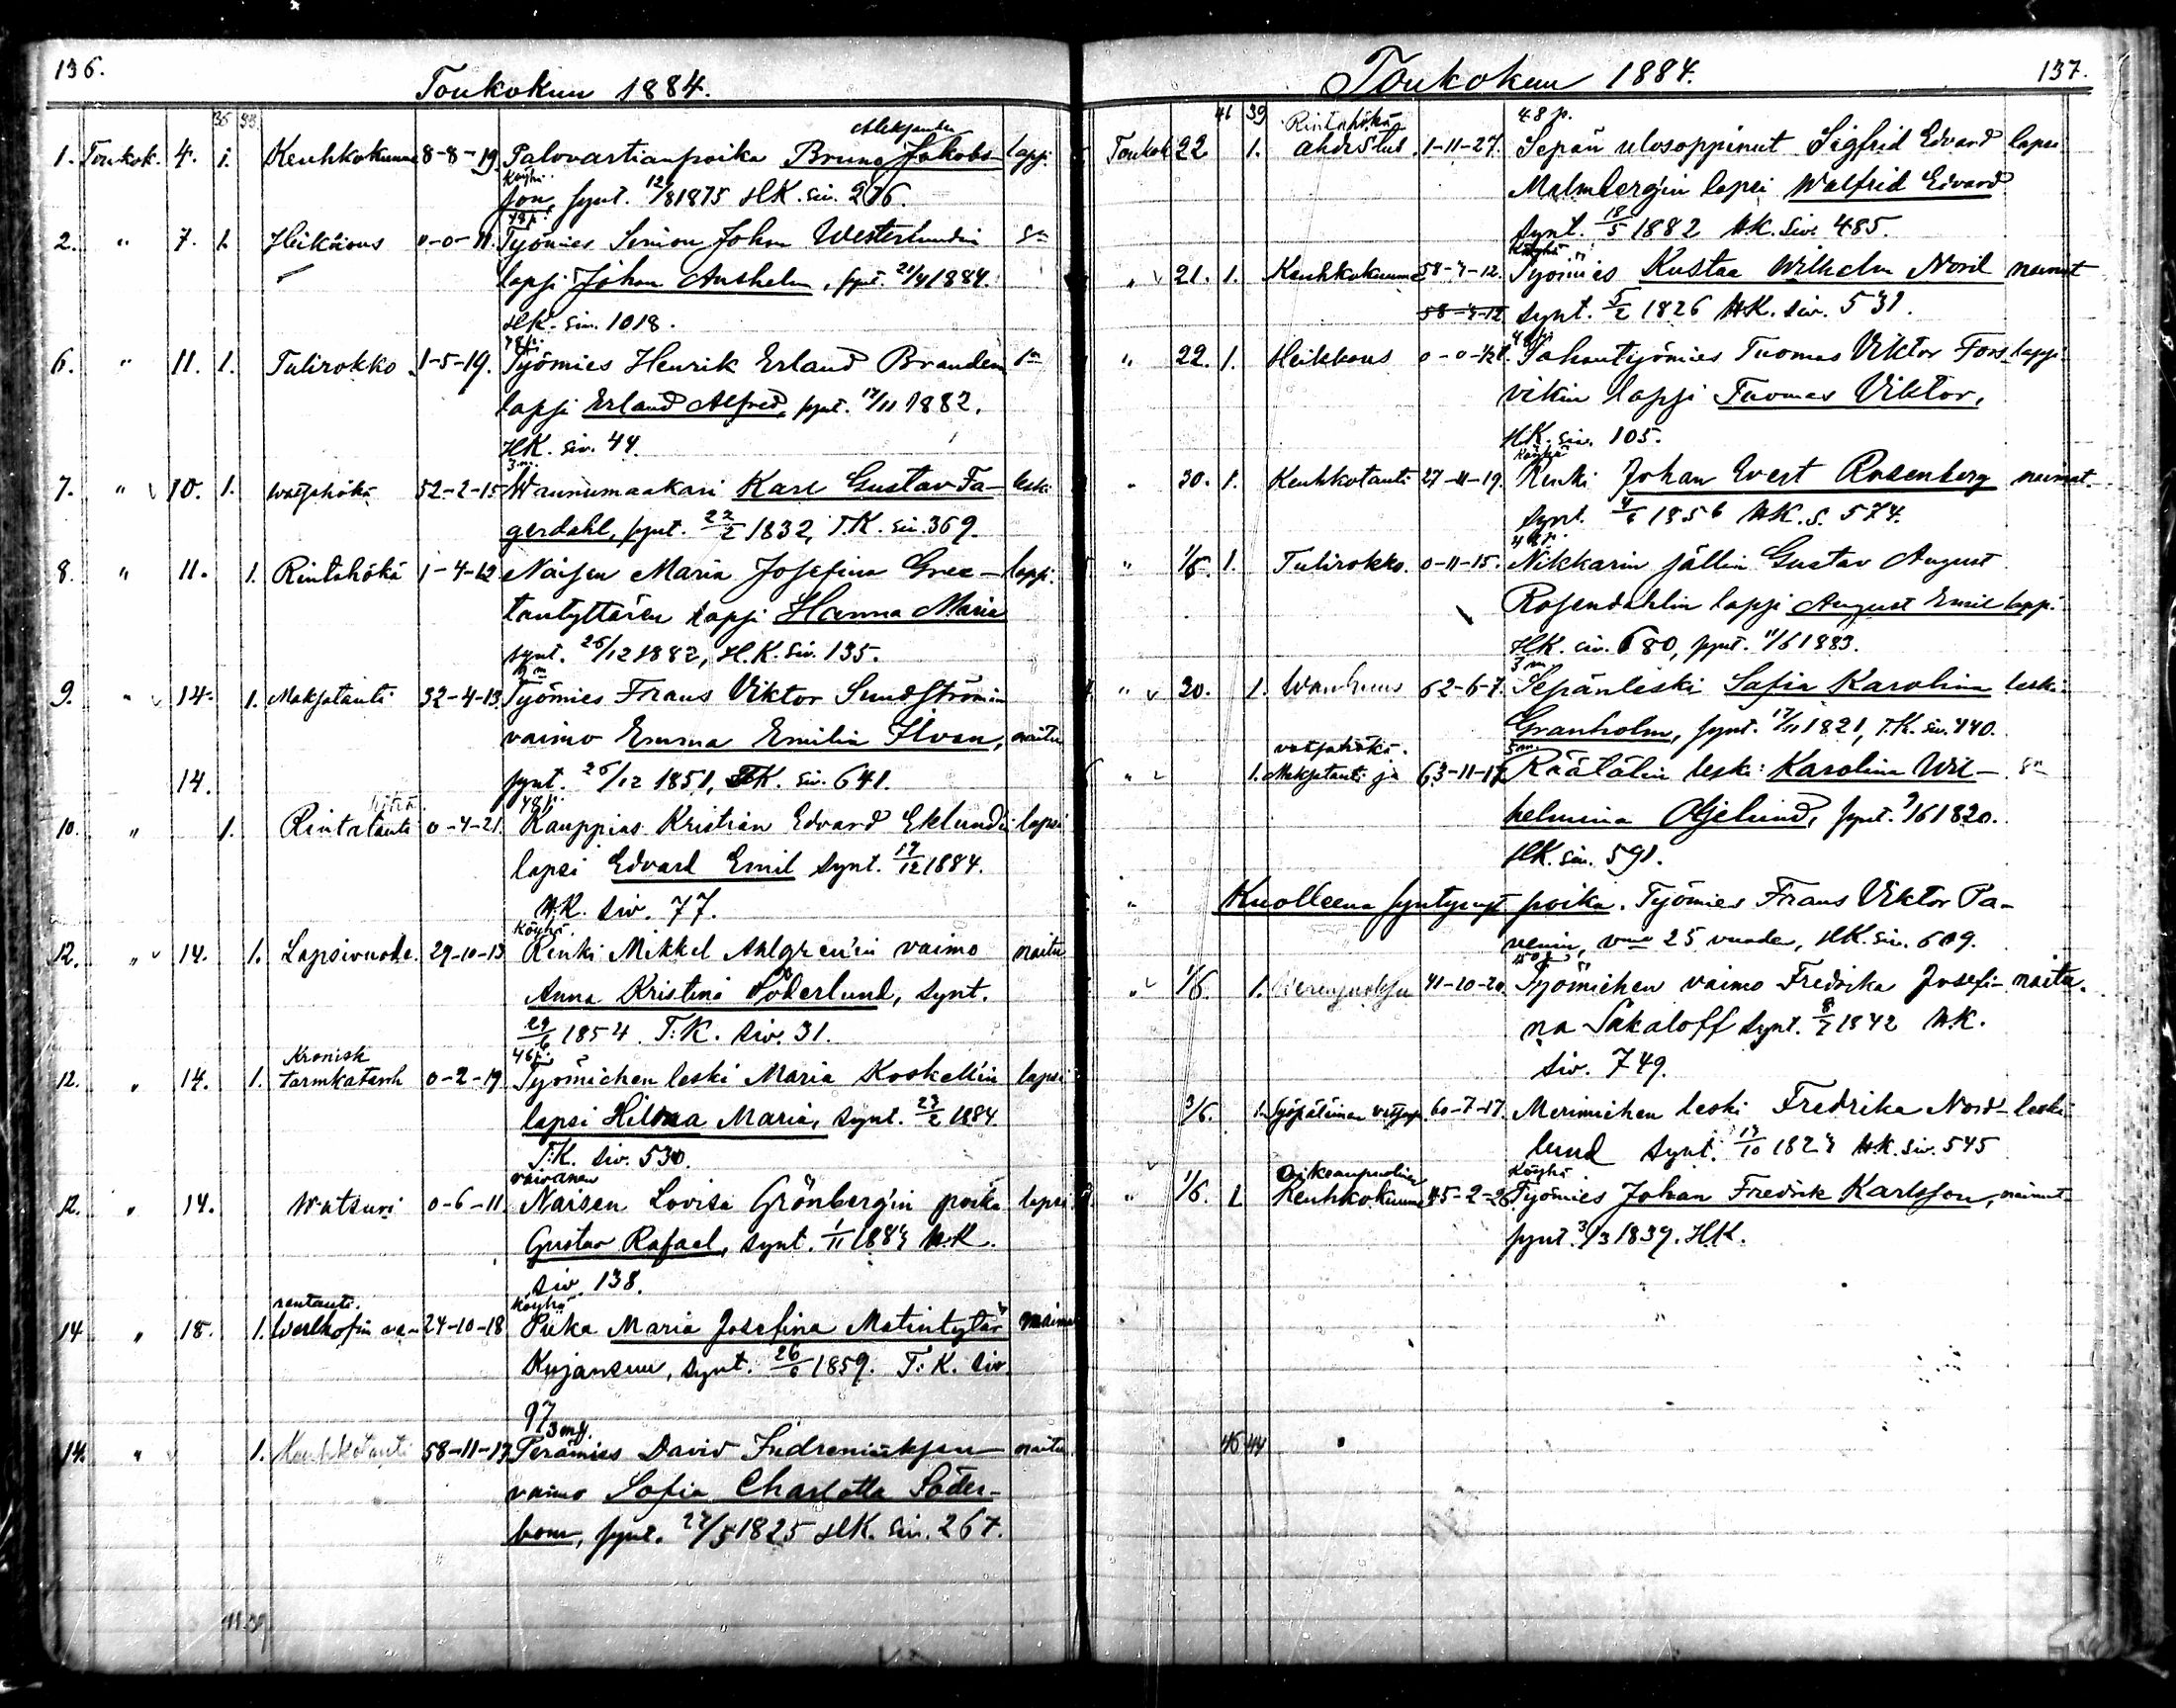 136.
Toukokuu 1884.
36 38.
1. Toukok. 4. 1. Keuhkokuume 8-8-19. Palovartianpoika Bruno Aleksander Jakobs- lapsi
Köyhä
son, synt. 12/8 1875 HK. siv. 276.
48 p.
2. " 7. 1. Heikkous 0-0-11. Työmies Simon Johan Westerlundin sn
lapsi Johan Anshelm, synt. 21/4 1884.
HK. siv. 1018.
48 p.
6. " 11. 1. Tulirokko 1-5-19. Työmies Henrik Erland Branden sn
lapsi Erland Alfred, synt. 17/11 1882.
HK. siv. 44.
3 m.
7. " 10. 1. Watsahökä 52-2-15 Waunumaakari Karl Gustav Fa- leski
gerdahl, synt. 22/2 1832, T.K. siv. 369.
8. " 11. 1. Rintahökä 1-4-12 Naisen Maria Josefina Gree- lapsi.
tantyttären lapsi Hanna Maria
synt. 26/12 1882, H.K. siv. 135.
9. " 14. 1. Maksatauti 32-4-13. Työmies Frans Viktor Sundströmin
vaimo Emma Emilia Ilvan, naitu
14. synt. 26/12 1851, TK. siv. 641.
48 p.
hökä.
10. " 1. Rintatauti 0-4-21. Kauppias Kristian Edvard Eklundin lapsi
lapsi Edvard Emil synt. 17/12 1884.
H.K. siv. 77.
Köyhä.
12. " 14. 1. Lapsivuode. 29-10-13 Renki Mikkel Ahlgren'in vaimo naitu
Anna Kristina Söderlund, synt.
29/6 1854. T.K. siv. 31.
Kronisk 48 p.
12. " 14. 1. tarmkatarrh 0-2-19 Työmiehen leski Maria Koskellin lapsi
lapsi Hilma Maria, synt. 23/2 1884.
T.K. siv. 530.
vaivanen
12. " 14. Watsuri 0-6-11 Naisen Lovisa Grönberg'in poika lapsi
Gustav Rafael, synt. 1/11 1883 H.K.
siv. 138.
rentauti. Köyhä
14 " 18. 1. Werlhofin ve- 24-10-18 Piika Maria Josefina Matintytär naima
Kujansuu, synt. 26/6 1859. T.K. siv.
97
3 mk.
14. " 1. Keuhkotauti 58-11-13 Perämies David Indreniuksen naitu
vaimo Sofia Charlotta Söder-
bom, synt. 27/5 1825 HK. siv. 267.
41. 39
Toukokuu 1884.
137.
41 39 Rintahökä 48 p.
Toukok 22 1. ahdistus 1-11-27. Sepän ulosoppinut Sigfrid Edvard lapsi
Malmberg'in lapsi Walfrid Edvard
synt. 18/5 1882 H.K. siv. 485.
Köyhä
" 21. 1. Keuhkokuume 58-3-12. Työmies Kustaa Wilhelm Nord naimat
58-3-12 synt. 5/2 1826 H.K. siv. 531.
48 p.
" 22. 1. Heikkous 0-0-1/2 t. Sahantyömies Tuomas Viktor Fors- lapsi
vikin lapsi Tuomas Viktor,
H.K. siv. 105.
Köyhä
" 30. 1. Keuhkotauti 27-11-19. Renki Johan Evert Rosenberg naimat.
synt. 4/6 1856 H.K. s. 574.
48 p.
" 1/6. 1. Tulirokko. 0-11-15. Nikkarin sällin Gustav August
Rosendahlin lapsi August Emil lapsi
H.K. siv. 680, synt. 11/6 1883.
3 m
" 20. 1. Wanhuus 62-6-7. Sepänleski Sofia Karolina leski
Granholm, synt. 17/11 1821, T.K. siv. 440.
vatsahökä. 5 m.
" 1. Maksatauti ja 63-11-17 Räätälin leski Karolina Wil- sn
helmina Öjelund, synt. 9/6 1820.
HK. siv. 591.
" Kuolleena syntynyt poika. Työmies Frans Viktor Pa-
venin, vmo 25 vuoden, HK. siv. 609.
" 1/6. 1. 41-10-20. Työmiehen vaimo Fredrika Josefi- naitu.
na Sakaloff synt. 8/7 1842 H.K.
siv. 749.
3/6. 1. Syöpäläinen vatsassa 60-7-17. Merimiehen leski Fredrika Nord- leski
lund synt. 17/10 1823 H.K. siv. 545
Oikeanpuolinen Köyhä
" 1/6. 1. Keuhkokuume 45-2-28. Työmies Johan Fredrik Karlsson, naimat
synt. 3/3 1839. H.K.
46 44